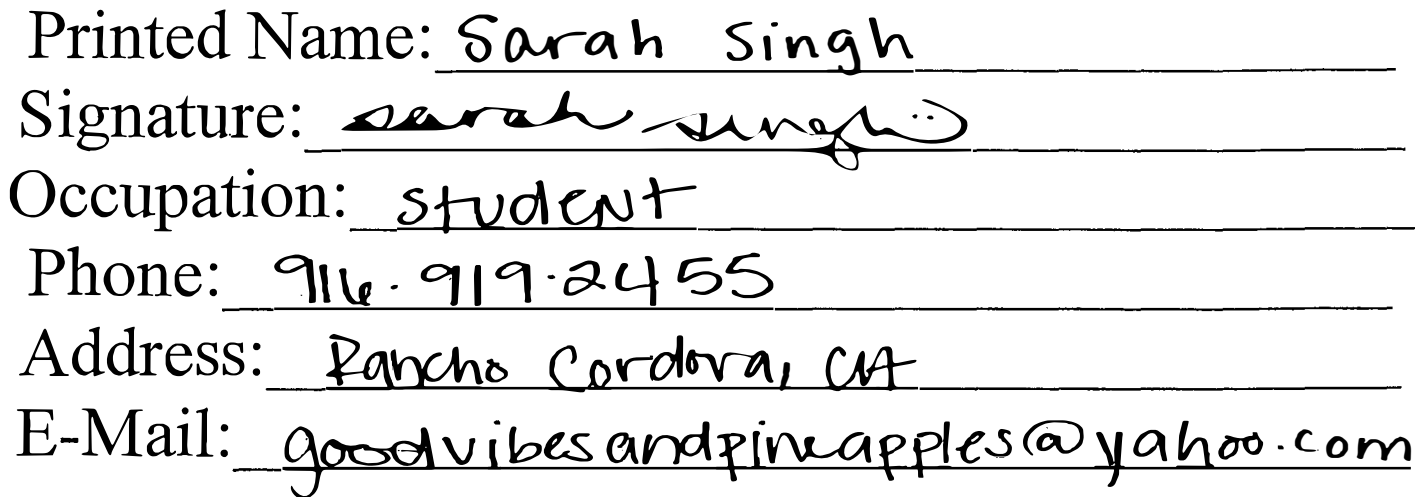 Printed Name: Sarah Singh
Signature: sarah singh
Occupation: student
Phone: 916.919.2455
Address: Rancho Cordova, CA
E-Mail: goodvibesandpineapples@yahoo.com